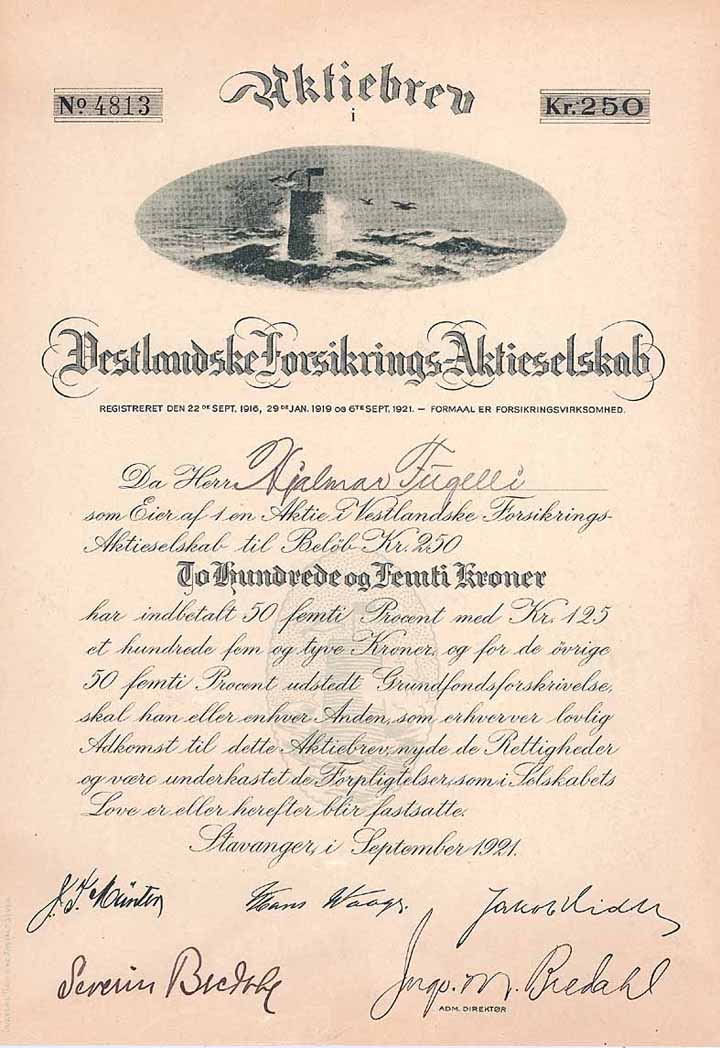 Aktiebrev
No 4813
Kr. 250
i
Vestlandske Forsikrings-Aktieselskab
REGISTRERET DEN 22DE SEPT. 1916, 29DE JAN. 1919 OG 6TE SEPT. 1921. — FORMAAL ER FORSIKRINGSVIRKSOMHED.
Da Herr Hjalmar Fugelli
som Eier af 1 en Aktie i Vestlandske Forsikrings-
Aktieselskab til Beløb Kr. 250
To Hundrede og Femti Kroner
har indbetalt 50 femti Procent med Kr. 125
et hundrede fem og tyve Kroner, og for de övrige
50 femti Procent udstedt Grundfondsforskrivelse,
skal han eller enhver Anden, som erhverver lovlig
Adkomst til dette Aktiebrev, nyde de Rettigheder
og være underkastet de Forpligtelser, som i Selskabets
Love er eller herefter blir fastsatte.
Stavanger, i September 1921.
Hans Waage.
Severin
Bredahl
ADM. DIREKTØR